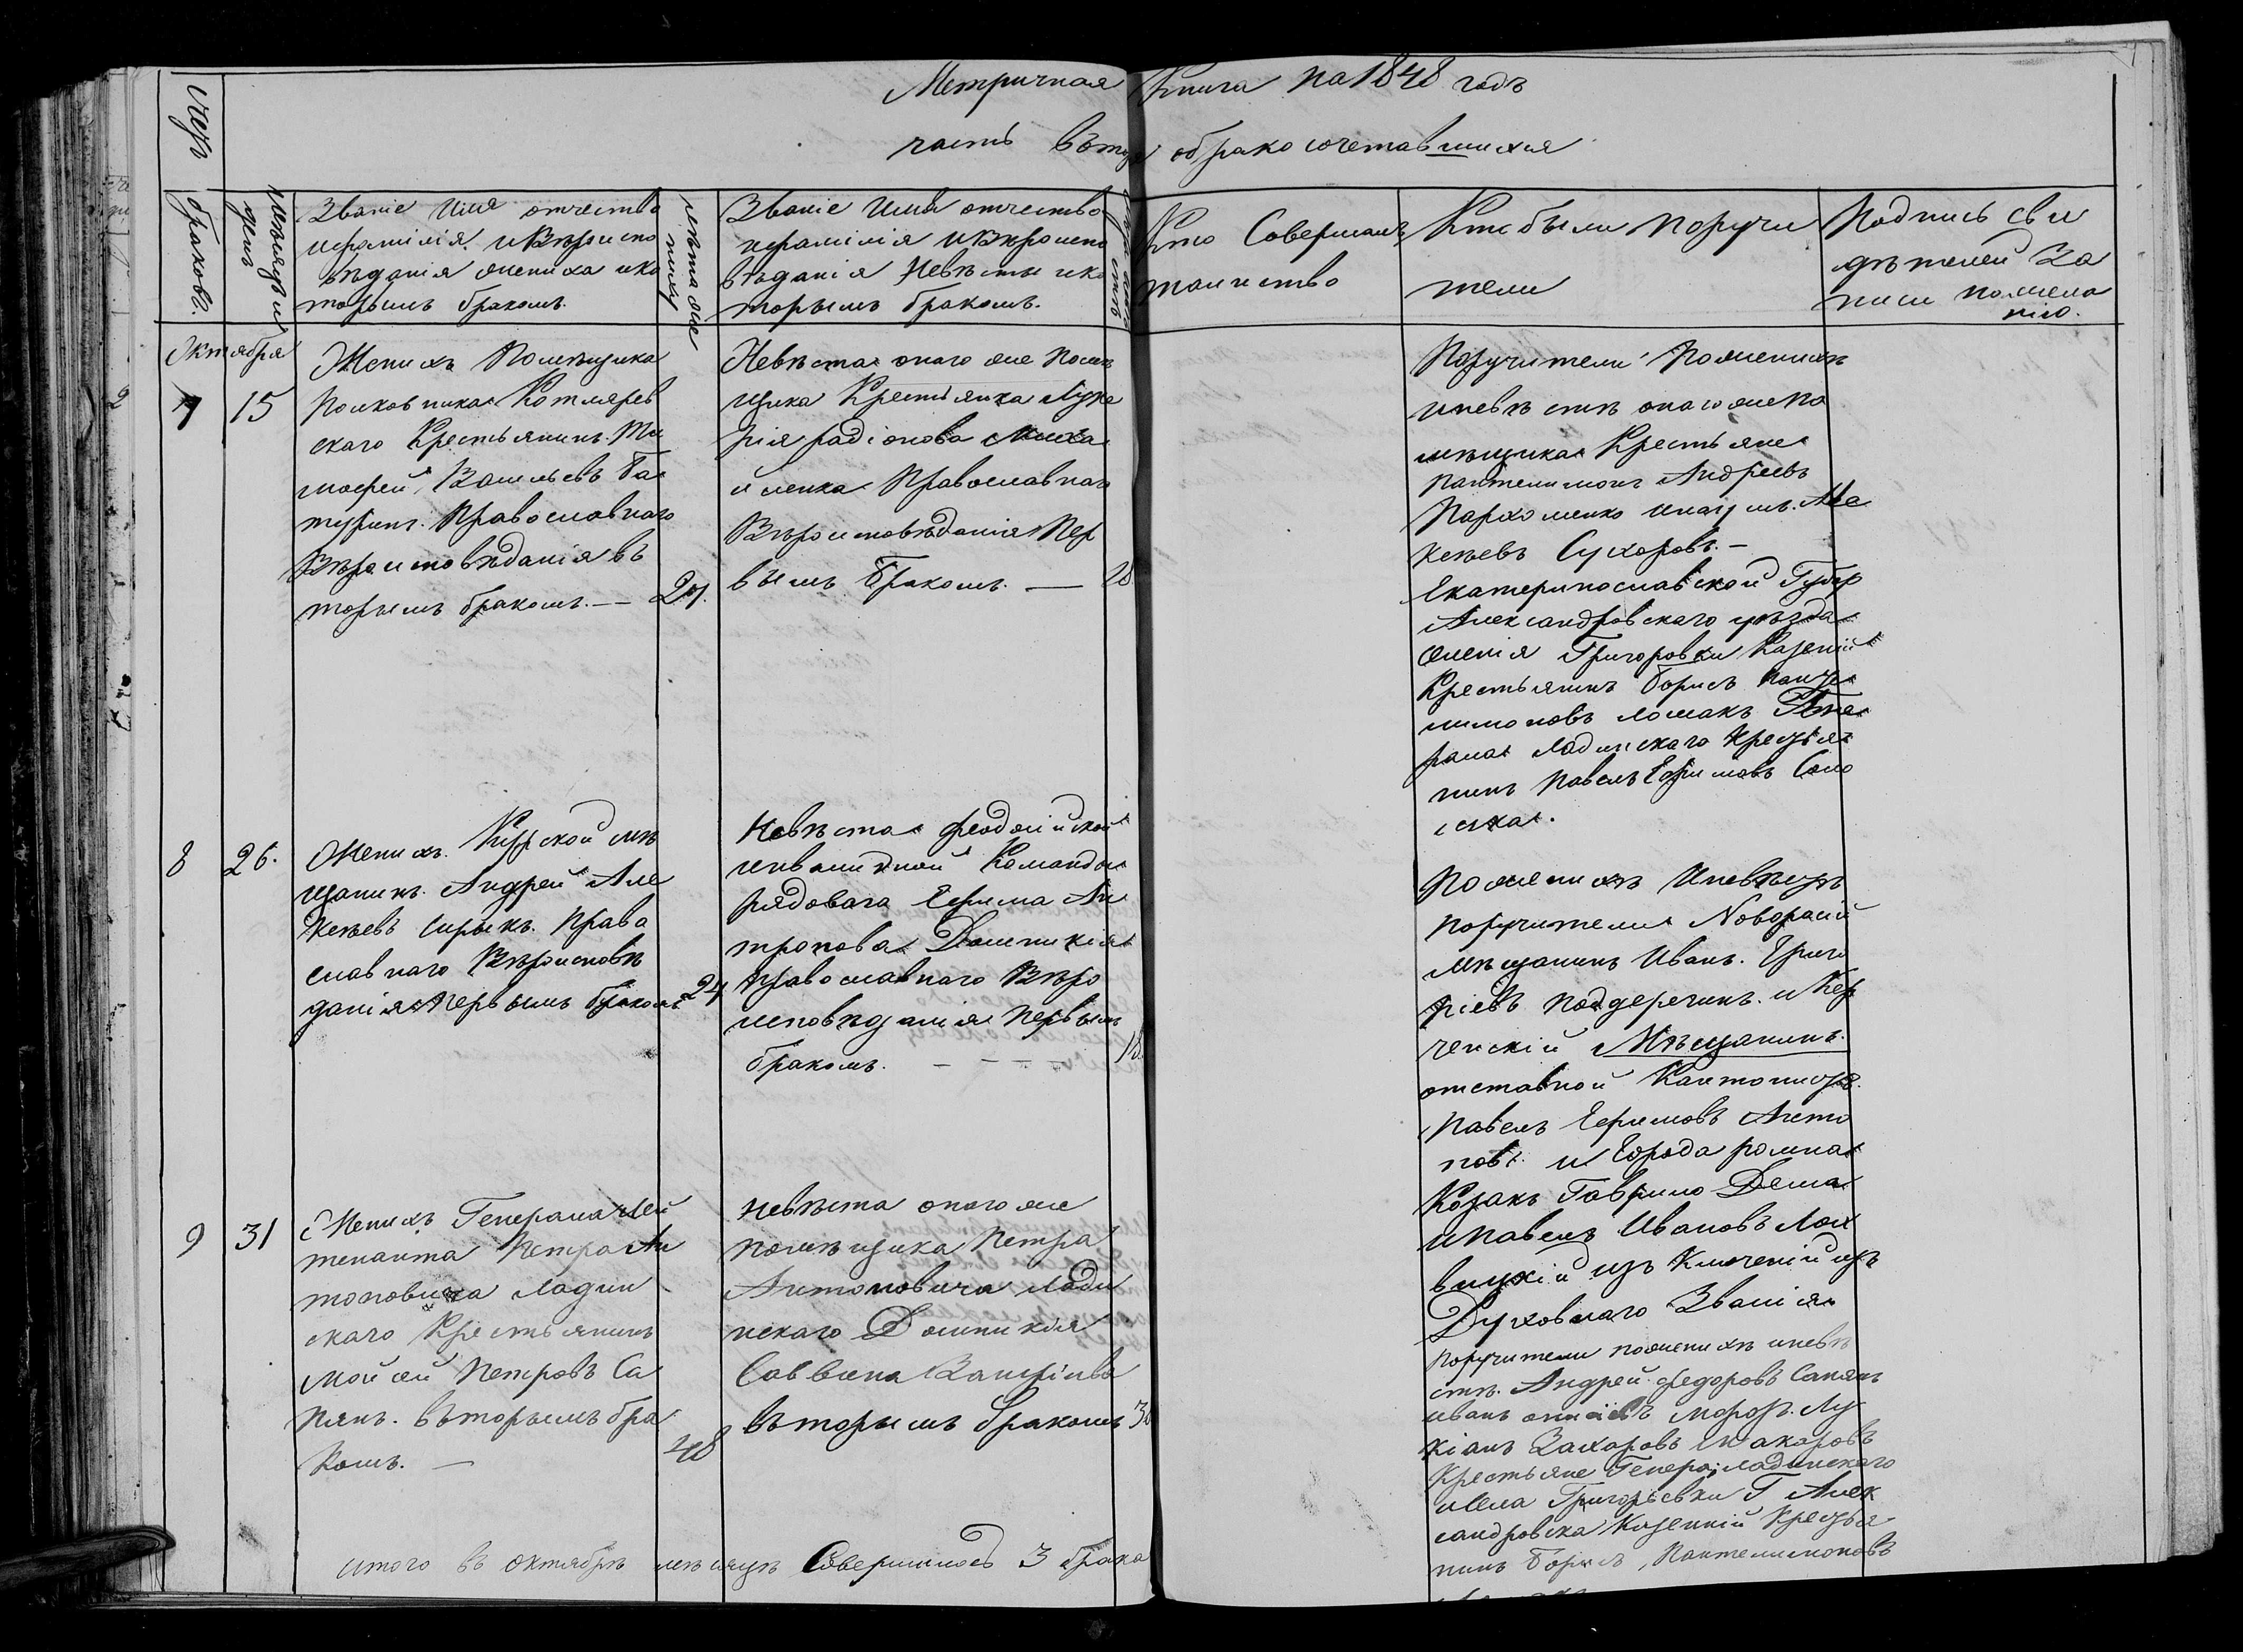 Метричная Книга на 1848 годъ
часть вторая о бракосочетавшихся
Счетъ браковъ.
Месяцъ и день
Званіе Имя отчество
и фамилія и Вероиспо
ведания жениха и ко
торымъ бракомъ.
лета жениха
Званіе Имя отчество
и фамилія и Вероиспо
ведания Невесты и ко
торымъ бракомъ.
Кто Совершалъ
таинство
Кто были поручи
тели
Подпись сви
детелей За
писи по жела
нию.
Октября
7
15
Женихъ Помещика
Полковника Котляров
скаго Крестьянинъ Ти
мофей Васильевъ Ба
туринъ. Православнаго
Вероисповеданія въ
торымъ бракомъ. —
29.
Невеста онаго же Поме
щика Крестьянка Луке
рія Радіонова Миха
йленка Православнаго
Вероисповеданія Пер
вымъ Бракомъ. —
Поручители По женихе
и невесте онаго же по
мещика Крестьяне
Пантелимонъ Андреевъ
Пархоменко и Але
ксеевъ Сухоровъ. —
Екатеринославской Губер
Александровскаго уезда
селенія Григоровки Казеній
Крестьянинъ Борисъ Панте
лимоновъ Ломакъ Гене
рала Ладинскаго Крестья
нинъ Павелъ Ефимовъ
8
26.
Женихъ. Курской ме
щанинъ. Андрей Але
ксеевъ Сирыкъ. Право
славнаго Вероисповѣ
данія Первымъ бракомъ
24
Невеста Феодосійской
инвалидной Команды
рядоваго Ефима Ан
тропова Домникія
Православнаго Веро
исповеданія Первымъ
бракомъ. – – – –
18.
По жениху И невесте
поручители Новорасій
мещанинъ Иванъ. Григо
ріевъ Поддеречинъ. и Кер
ченскій Мещанинъ.
отставной Кантонистъ.
Павелъ Ефимовъ Анто
новъ. и Города ромна
Козакъ Гаврило Деша
и Павелъ Ивановъ Лох
вицкій изъ Ключеній изъ
Духовнаго Званія
9
31
Женихъ Генерала Лей
тенанта Петра Ан
тоновича Ладин
скаго Крестьянинъ
Мойсей Петровъ Са
пянъ. въторымъ бра
комъ. —
48
Невеста онаго же
помещика Петра
Антоновича Лади
нскаго Домникія
Саввина
въторымъ бракомъ
Поручители по женихе и неве
сте. Андрей Федоровъ Сапянъ
Иванъ Морозъ. Лу
кіанъ Захаровъ Макаровъ
Крестьяне Генера. Ладинскаго
и Села Григорьевки Г Алек
сандровска Казенній Крестья
нинъ Борисъ Пантелимоновъ
итого въ Октябре месяце Совершилось 3 брака